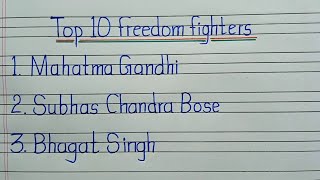 Top 10 freedom fighters
1. Mahatma Gandhi
2. Subhas Chandra Bose
3. Bhagat Singh